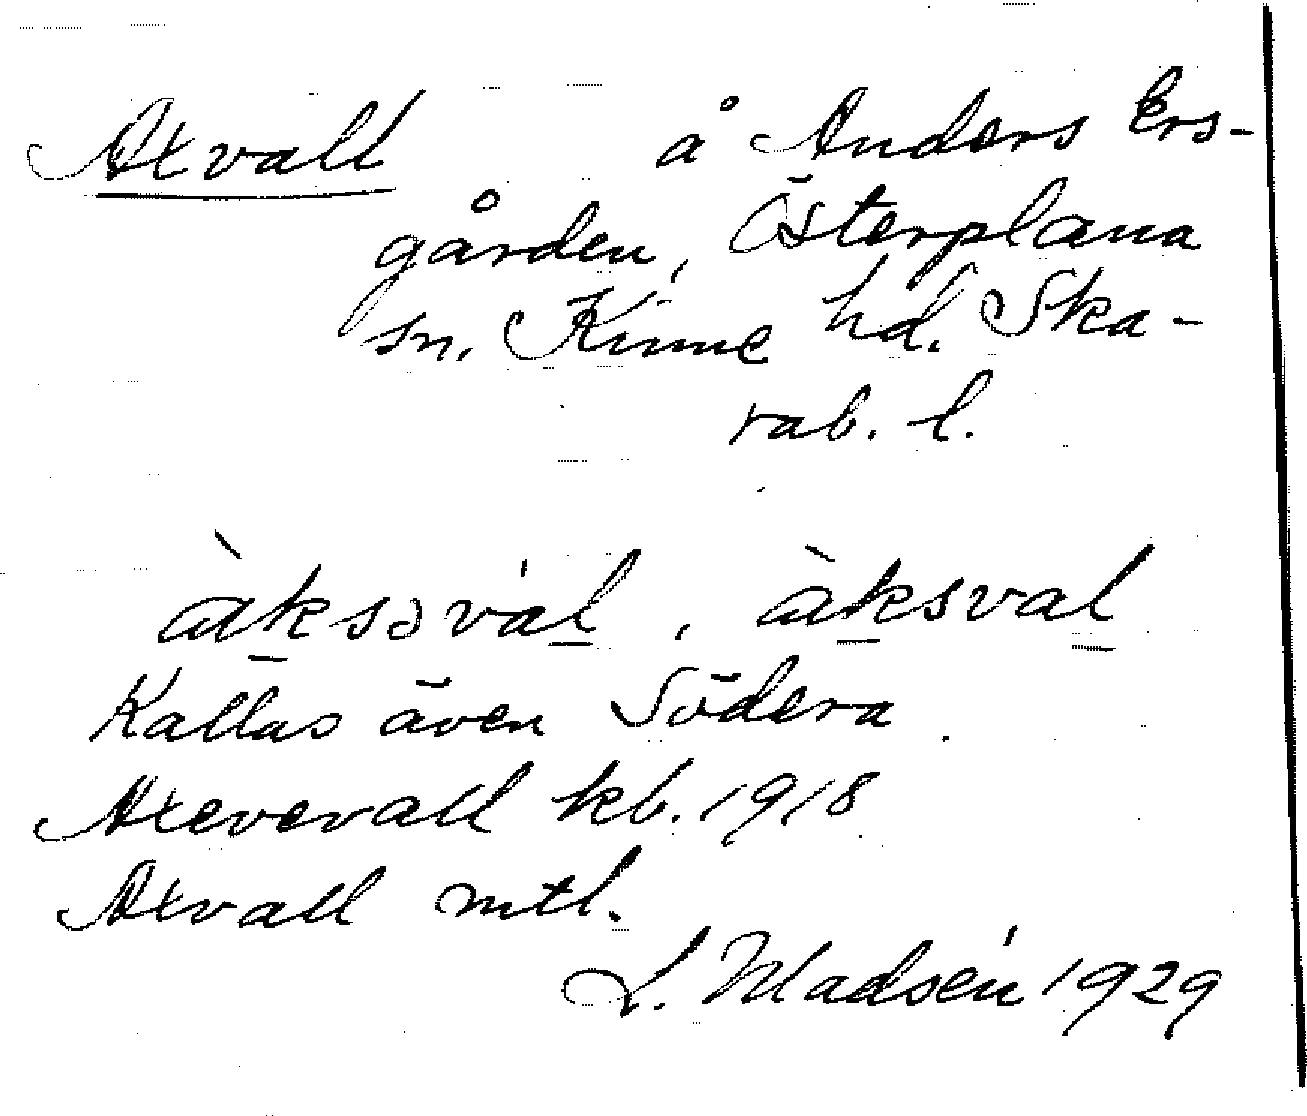 Axvall å Anders Ers-
gården, Österplana
sn. Kinne hd. Ska-
rab. l.
àksəvál, àksval
Kallas även Södera
Axevevall kb. 1918
Axvall mtl.
L. Madsén 1929